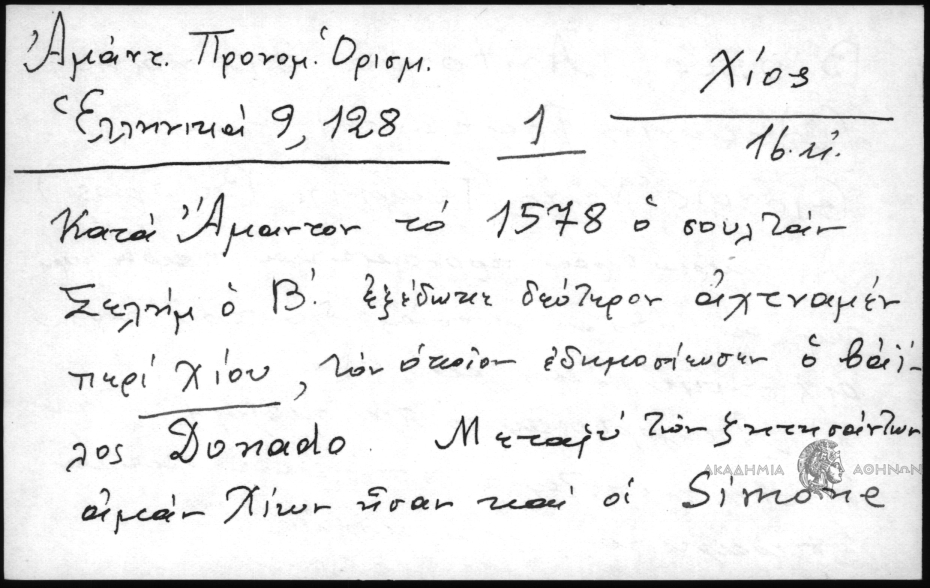 Ἀμάντ. Προνομ. Ὁρισμ.
Ἑλληνικά 9, 128
1
Χίος
16. αἰ.
Κατά Ἄμαντον τό 1578 ὁ σουλτάν
Σελήμ ὁ Β΄. ἐξέδωκε δεύτερον ἀχτεναμέν
περί Χίου, τόν ὁποῖον ἐδημοσίευσεν ὁ βάϊ-
λος Donado. Μεταξύ τῶν ζητησάντων
Χίων ἦσαν καί οἱ Simone
ΑΚΑΔΗΜΙΑ ΑΘΗΝΩΝ